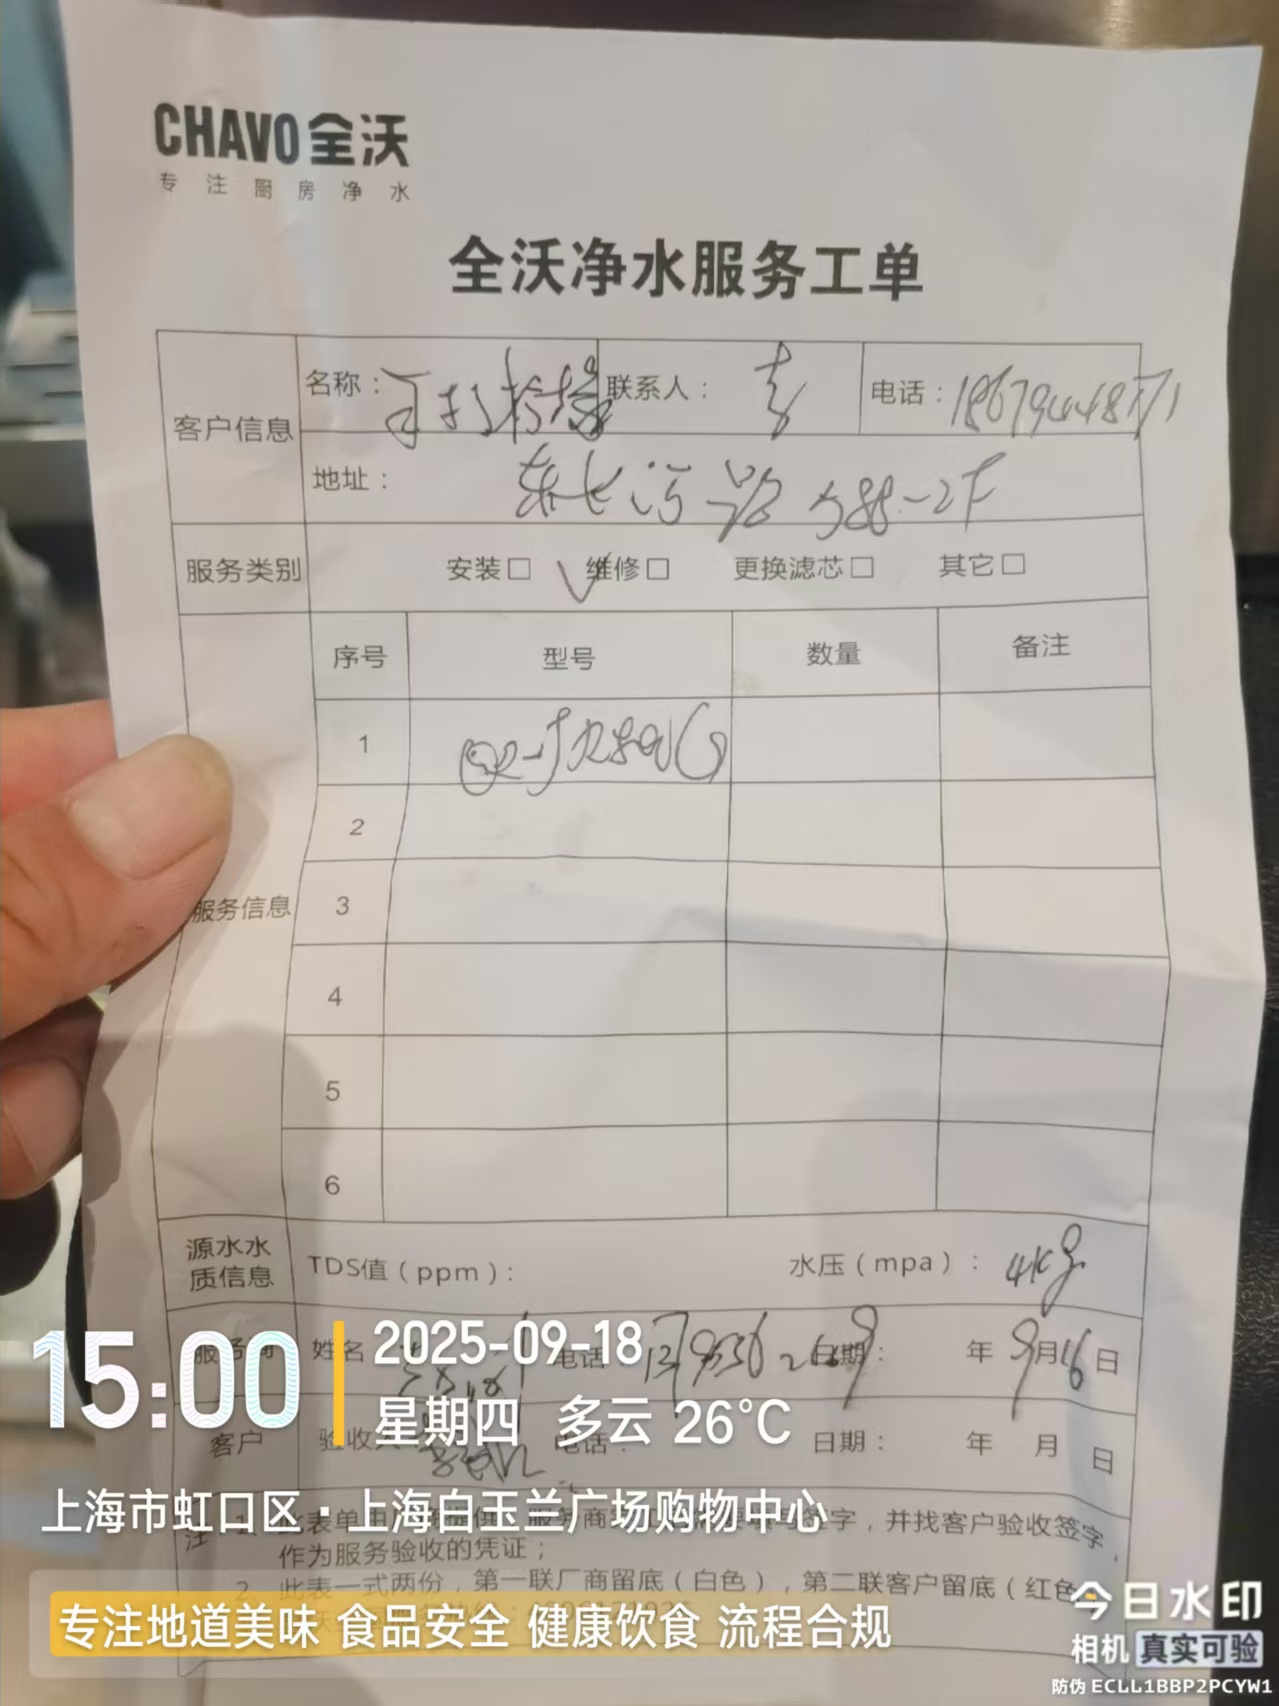 CHAVO全沃
专注厨房净水
全沃净水服务工单
客户信息 名称： 联系人： 电话：
地址：东长治路588-2F
服务类别 安装□ 维修□ 更换滤芯□ 其它□
服务信息 序号 型号 数量 备注
1
2
3
4
5
6
源水水质信息 TDS值（ppm）： 水压（mpa）：4kg
姓名 电话 日期： 年 9月16日
客户 电话： 日期： 年 月 日
15:00
2025-09-18
星期四 多云 26°C
上海市虹口区·上海白玉兰广场购物中心
注 1 此表单由 签字，并找客户验收签字，
作为服务验收的凭证；
2 此表一式两份，第一联厂商留底（白色），第二联客户留底（红色
专注地道美味 食品安全 健康饮食 流程合规
今日水印
相机 真实可验
防伪 ECLL1BBP2PCYW1